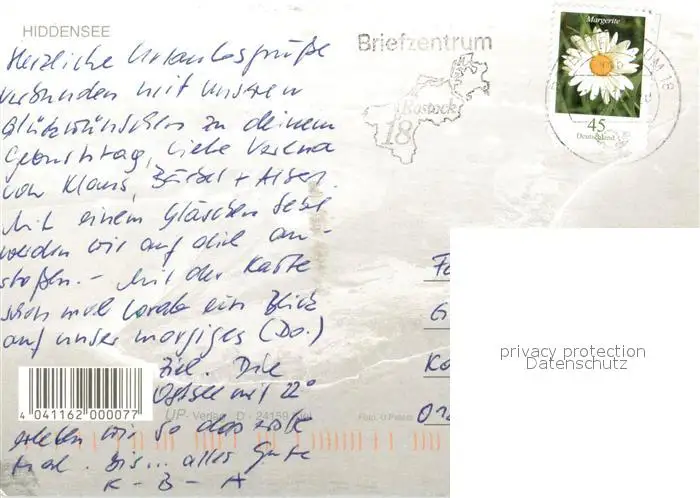 HIDDENSEE
Herzliche Urlaubsgrüße
verbunden mit unseren
Glückwünschen zu deinem
Geburtstag, liebe Verena
von Klaus, Bärbel +
Mit einem Gläschen Sekt
werden wir auf dich an-
stoßen. – Mit der Karte
schon mal vorab ein Blick
auf unser morgiges (Do.)
Ziel. Die
Ostsee mit 22°
erleben wir so das erste
Mal. Bis... alles Gute
K - B - A
4 041162 000077
UP- Verlag D - 24159 Kiel
Briefzentrum
Rostock
18
Margerite
45
Deutschland
18
privacy protection
Datenschutz